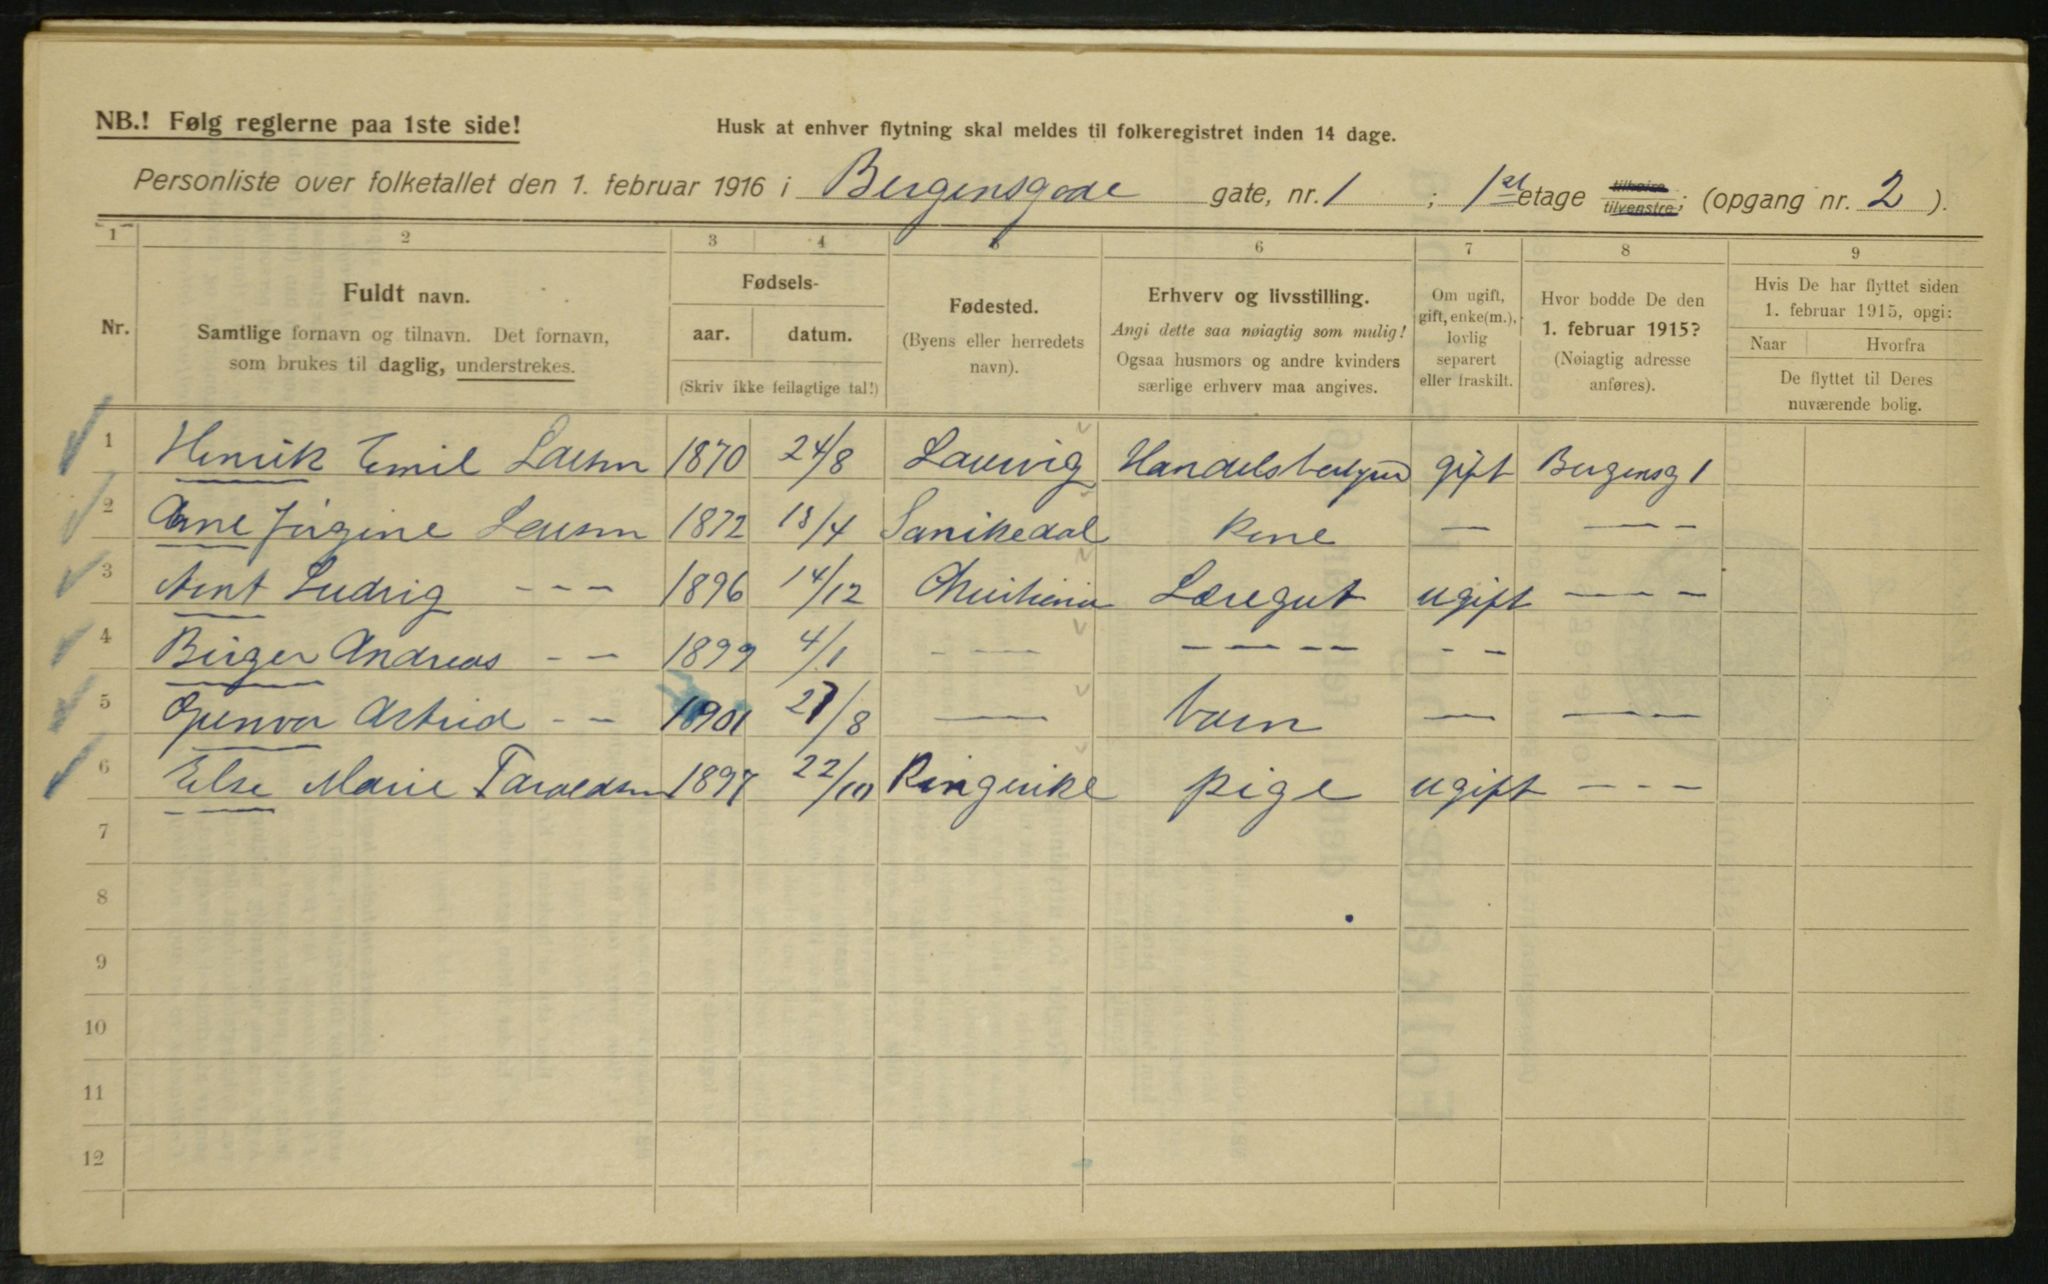 NB.! Følg reglerne paa 1ste side!
Husk at enhver flytning skal meldes til folkeregistret inden 14 dage.
Personliste over folketallet den 1. februar 1916 i Bergensgade gate, nr. 1 ; 1st etage tilhøire tilvenstre; (opgang nr. 2 ).
1 2 3 4 5 6 7 8 9
Nr.
Fuldt navn.
Samtlige fornavn og tilnavn. Det fornavn,
som brukes til daglig, understrekes.
Fødsels-
aar. datum.
(Skriv ikke feilagtige tal!)
Fødested.
(Byens eller herredets
navn).
Erhverv og livsstilling.
Angi dette saa nøiagtig som mulig!
Ogsaa husmors og andre kvinders
særlige erhverv maa angives.
Om ugift,
gift, enke(m.),
lovlig
separert
eller fraskilt.
Hvor bodde De den
1. februar 1915?
(Nøiagtig adresse
anføres).
Hvis De har flyttet siden
1. februar 1915, opgi:
Naar Hvorfra
De flyttet til Deres
nuværende bolig.
1 Henrik Emil Larsen 1870 24/8 Laurvig gift Bergensg 1
2 Jørgine Larsen 1872 13/4 Sanikedal Kone — — - -
3 Ludvig - - - 1896 14/12 Christiania Læregut ugift - - - -
4 Birger Andreas - - 1899 4/1 - - - - - - - - -
5 Astrid - - 1901 27/8 — barn — - - -
6 Else Marie 1897 22/10 Ringerike pige ugift - - - -
7
8
9
10
11
12